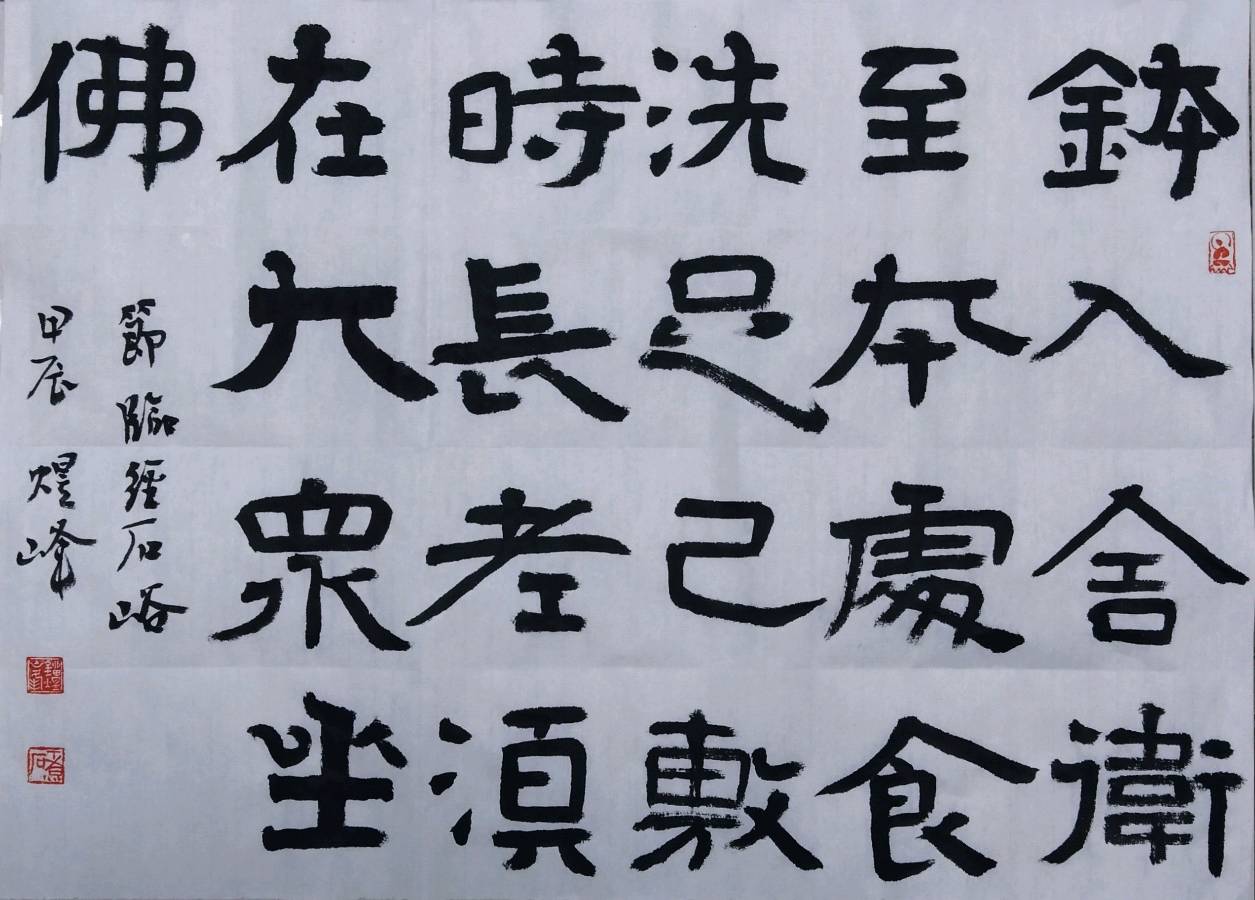 鉢入舍衛
至本處食
洗足已敷
時長老湏
在大眾坐
佛
節臨經石峪
甲辰 煜峰